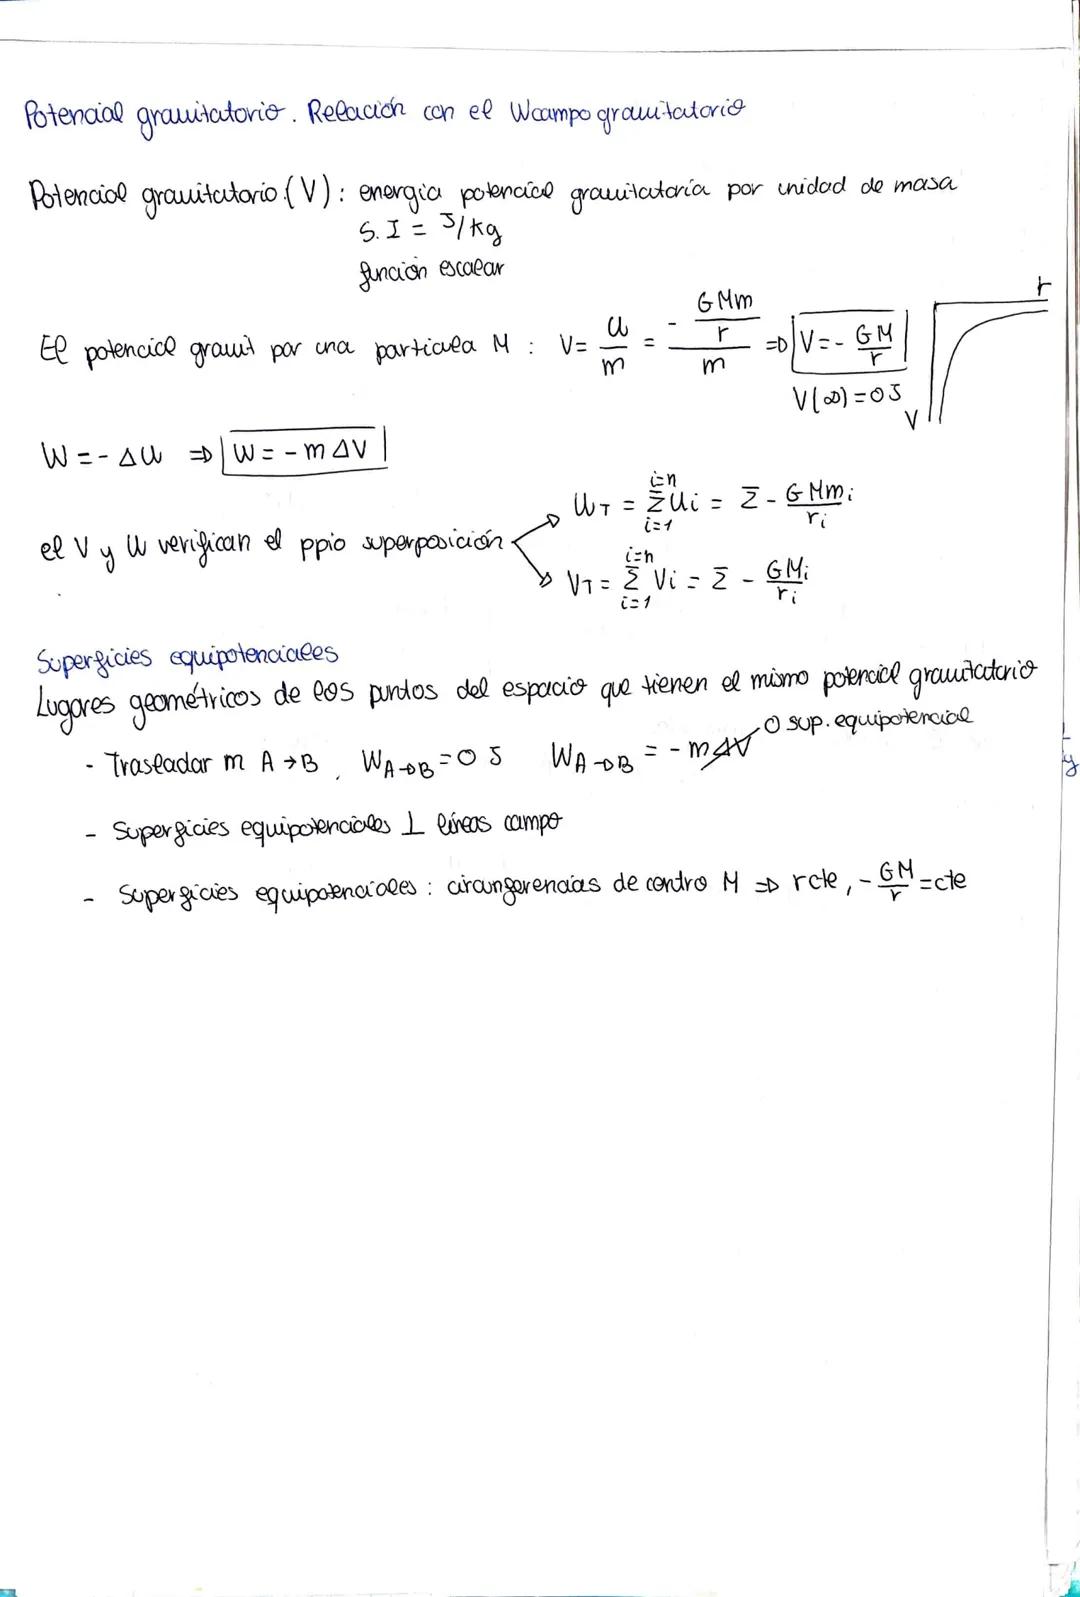 Potencial gravitatorio. Relación con el Wcampo gravitatorio
Potencial gravitatorio (V): energía potencial gravitatoria por unidad de masa
S.I = J/kg
función escalar
El potencial gravit por una partícula M: V = U/m = (- GMm/r)/m => V = - GM/r
V(∞) = 0 J
r
V
W = - ΔU => W = - m ΔV
el V y U verifican el ppio superposición
UT = Σ i=1 i=n Ui = Σ - GMmi/ri
VT = Σ i=1 i=n Vi = Σ - GMi/ri
Superficies equipotenciales
Lugares geométricos de los puntos del espacio que tienen el mismo potencial gravitatorio
- Trasladar m A → B, WA→B = 0 J WA→B = - m ΔV 0 sup. equipotencial
- Superficies equipotenciales ⊥ líneas campo
- Superficies equipotenciales: circunferencias de centro M => r cte, - GM/r = cte
y